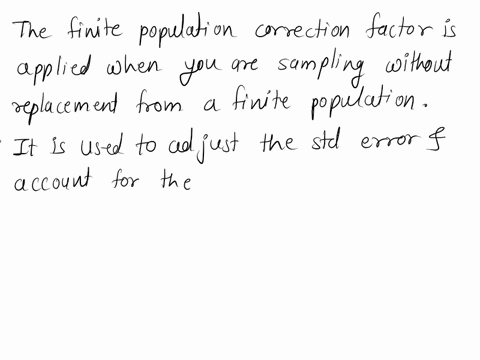 The finite population correction factor is
applied when you are sampling without
replacement from a finite population.
It is used to adjust the std error &
account for the